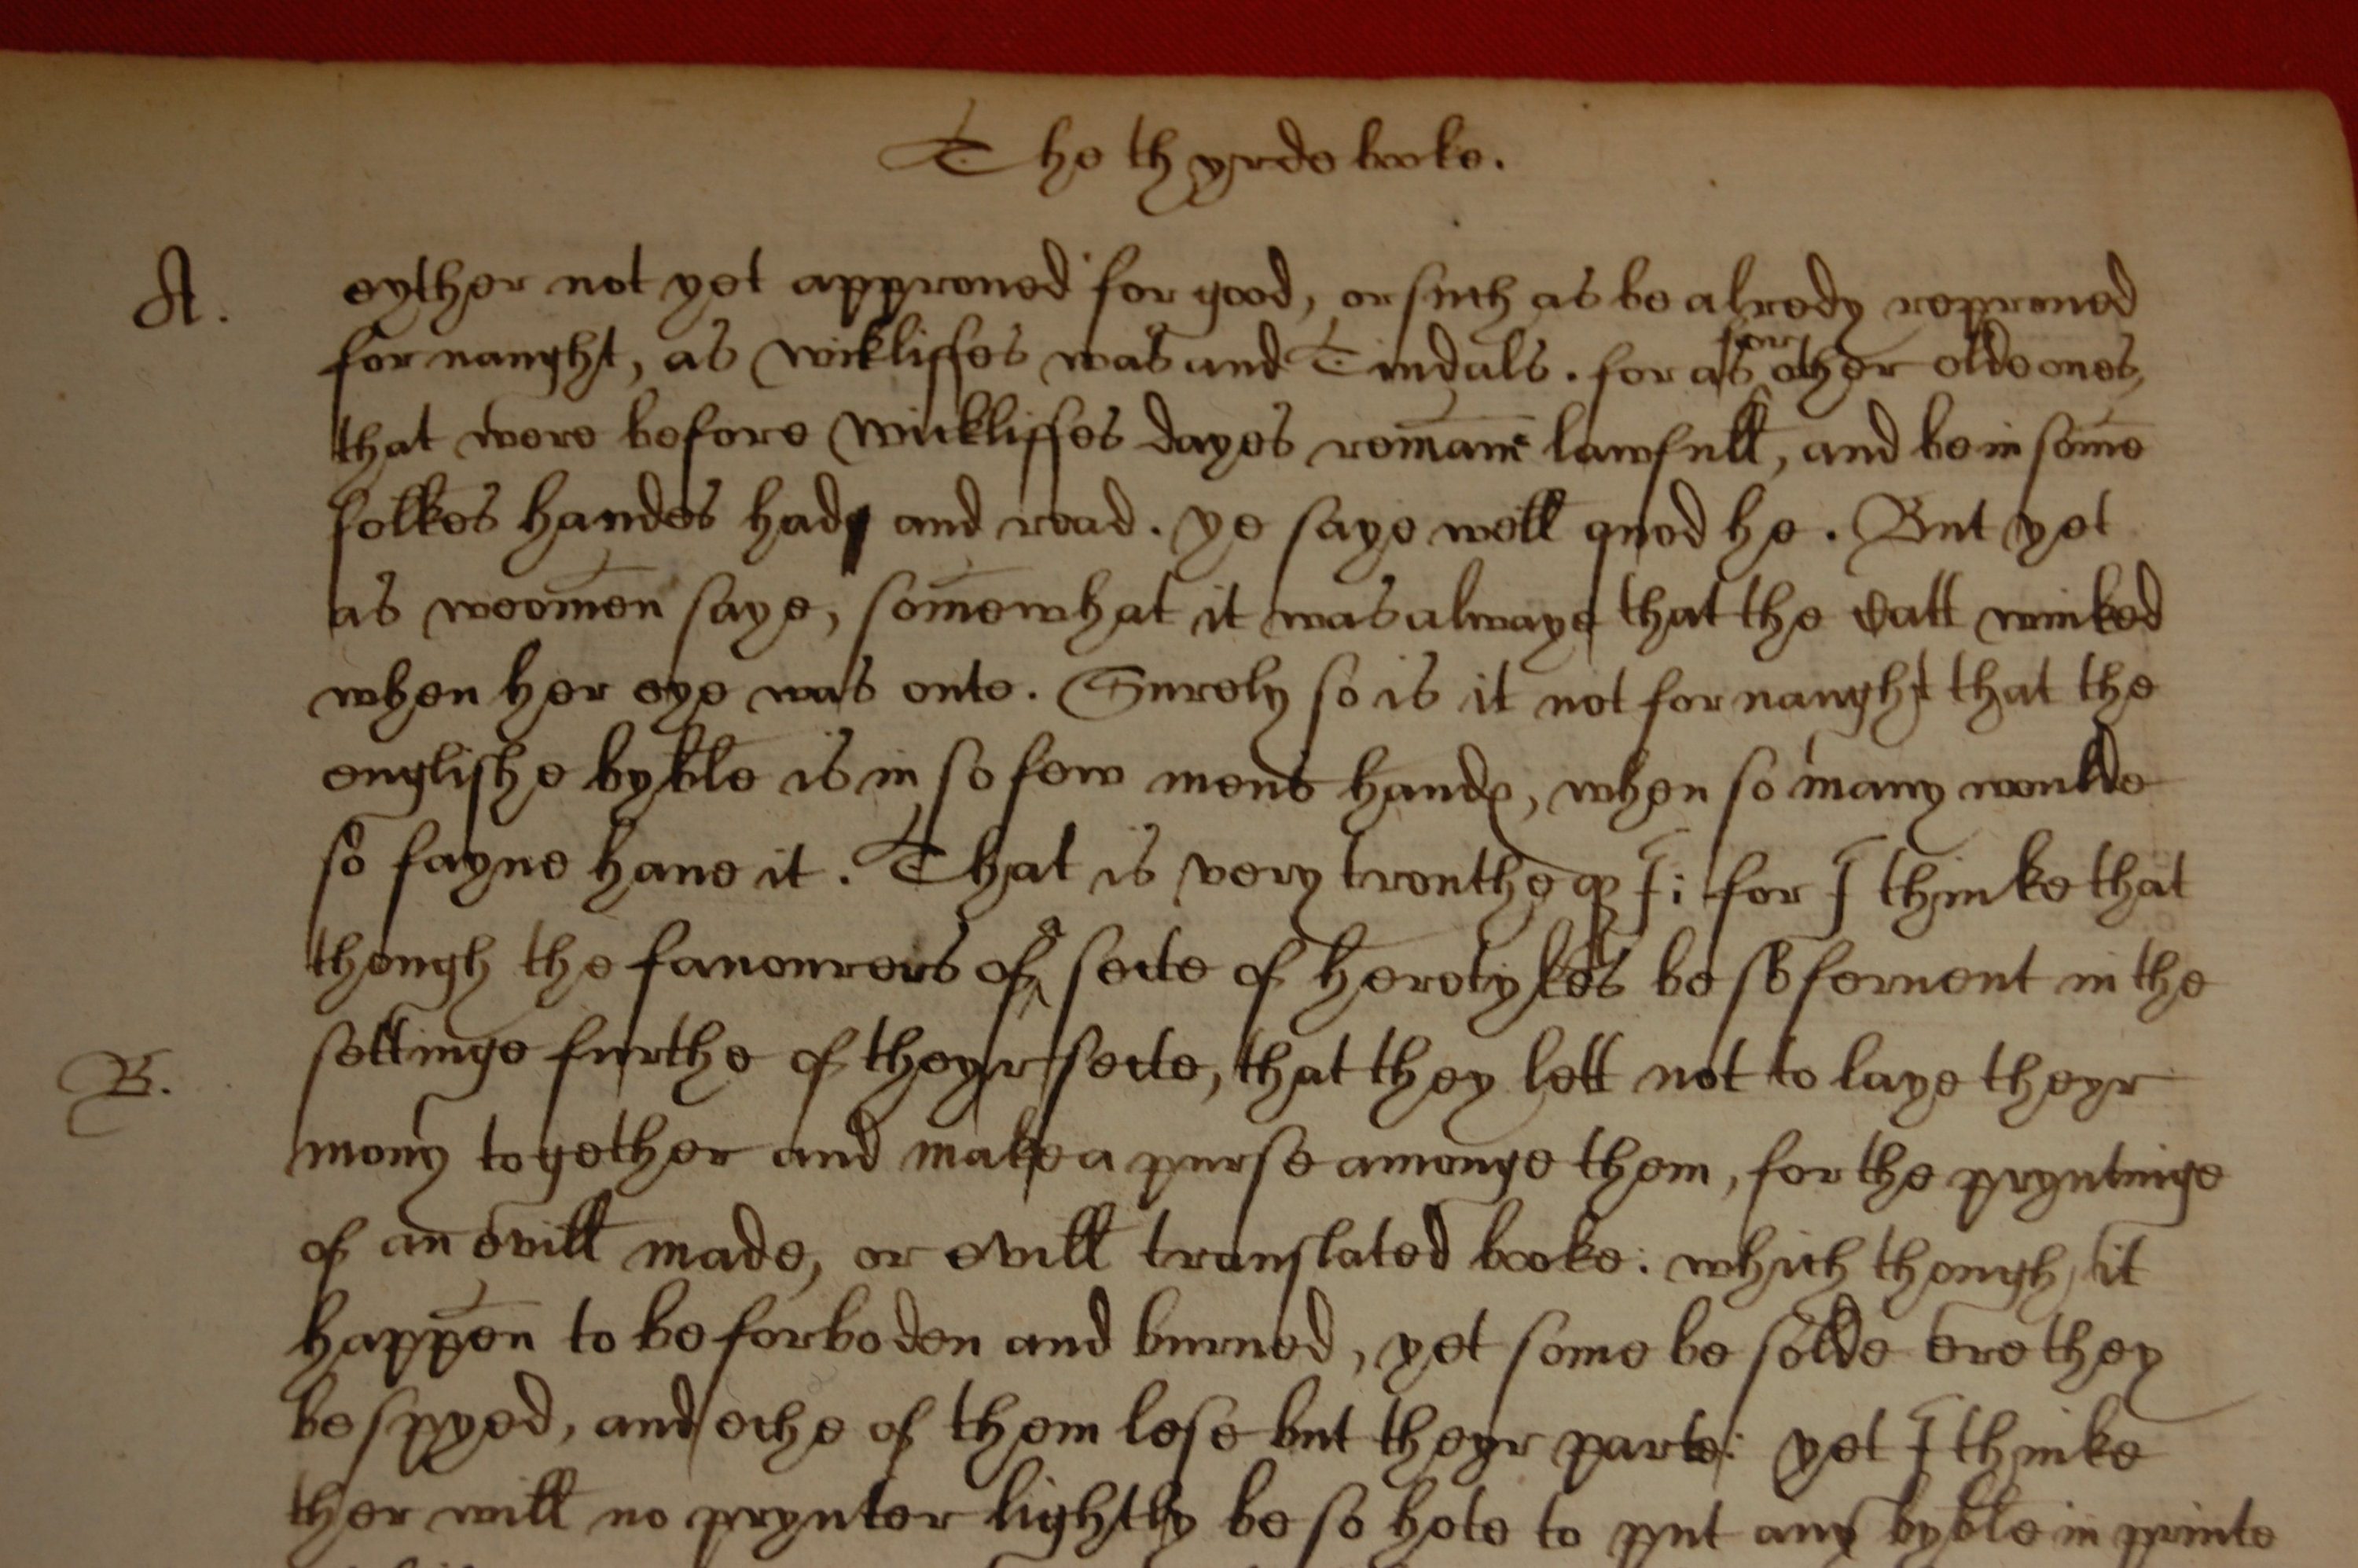 The thyrde booke.
A. eyther not yet approued for good, or such as be alredy reproued
for naught, as wickliffes was and Tindals. for as for other olde ones,
that were before Wickliffes dayes remaine lawfull, and be in some
folkes handes had and read. ye saye well quod he. But yet
as woomen saye, somewhat it was alwaye that the catt winked
when her eye was oute. Surely so is it not for naught that the
englishe byble is in so few mens handes, when so many woulde
so fayne haue it. That is very trouthe qp I: for I thinke that
though the fauourers of a secte of heretykes be so feruent in the
settinge furthe of theyr secte, that they lett not to laye theyr
B. mony together and make a purse amonge them, for the pryntinge
of an evill made, or evill translated booke: which though it
happen to be forboden and burned, yet some be solde ere they
be spyed, and eche of them lose but theyr parte: yet I thinke
ther will no prynter lightly be so hote to put any byble in printe